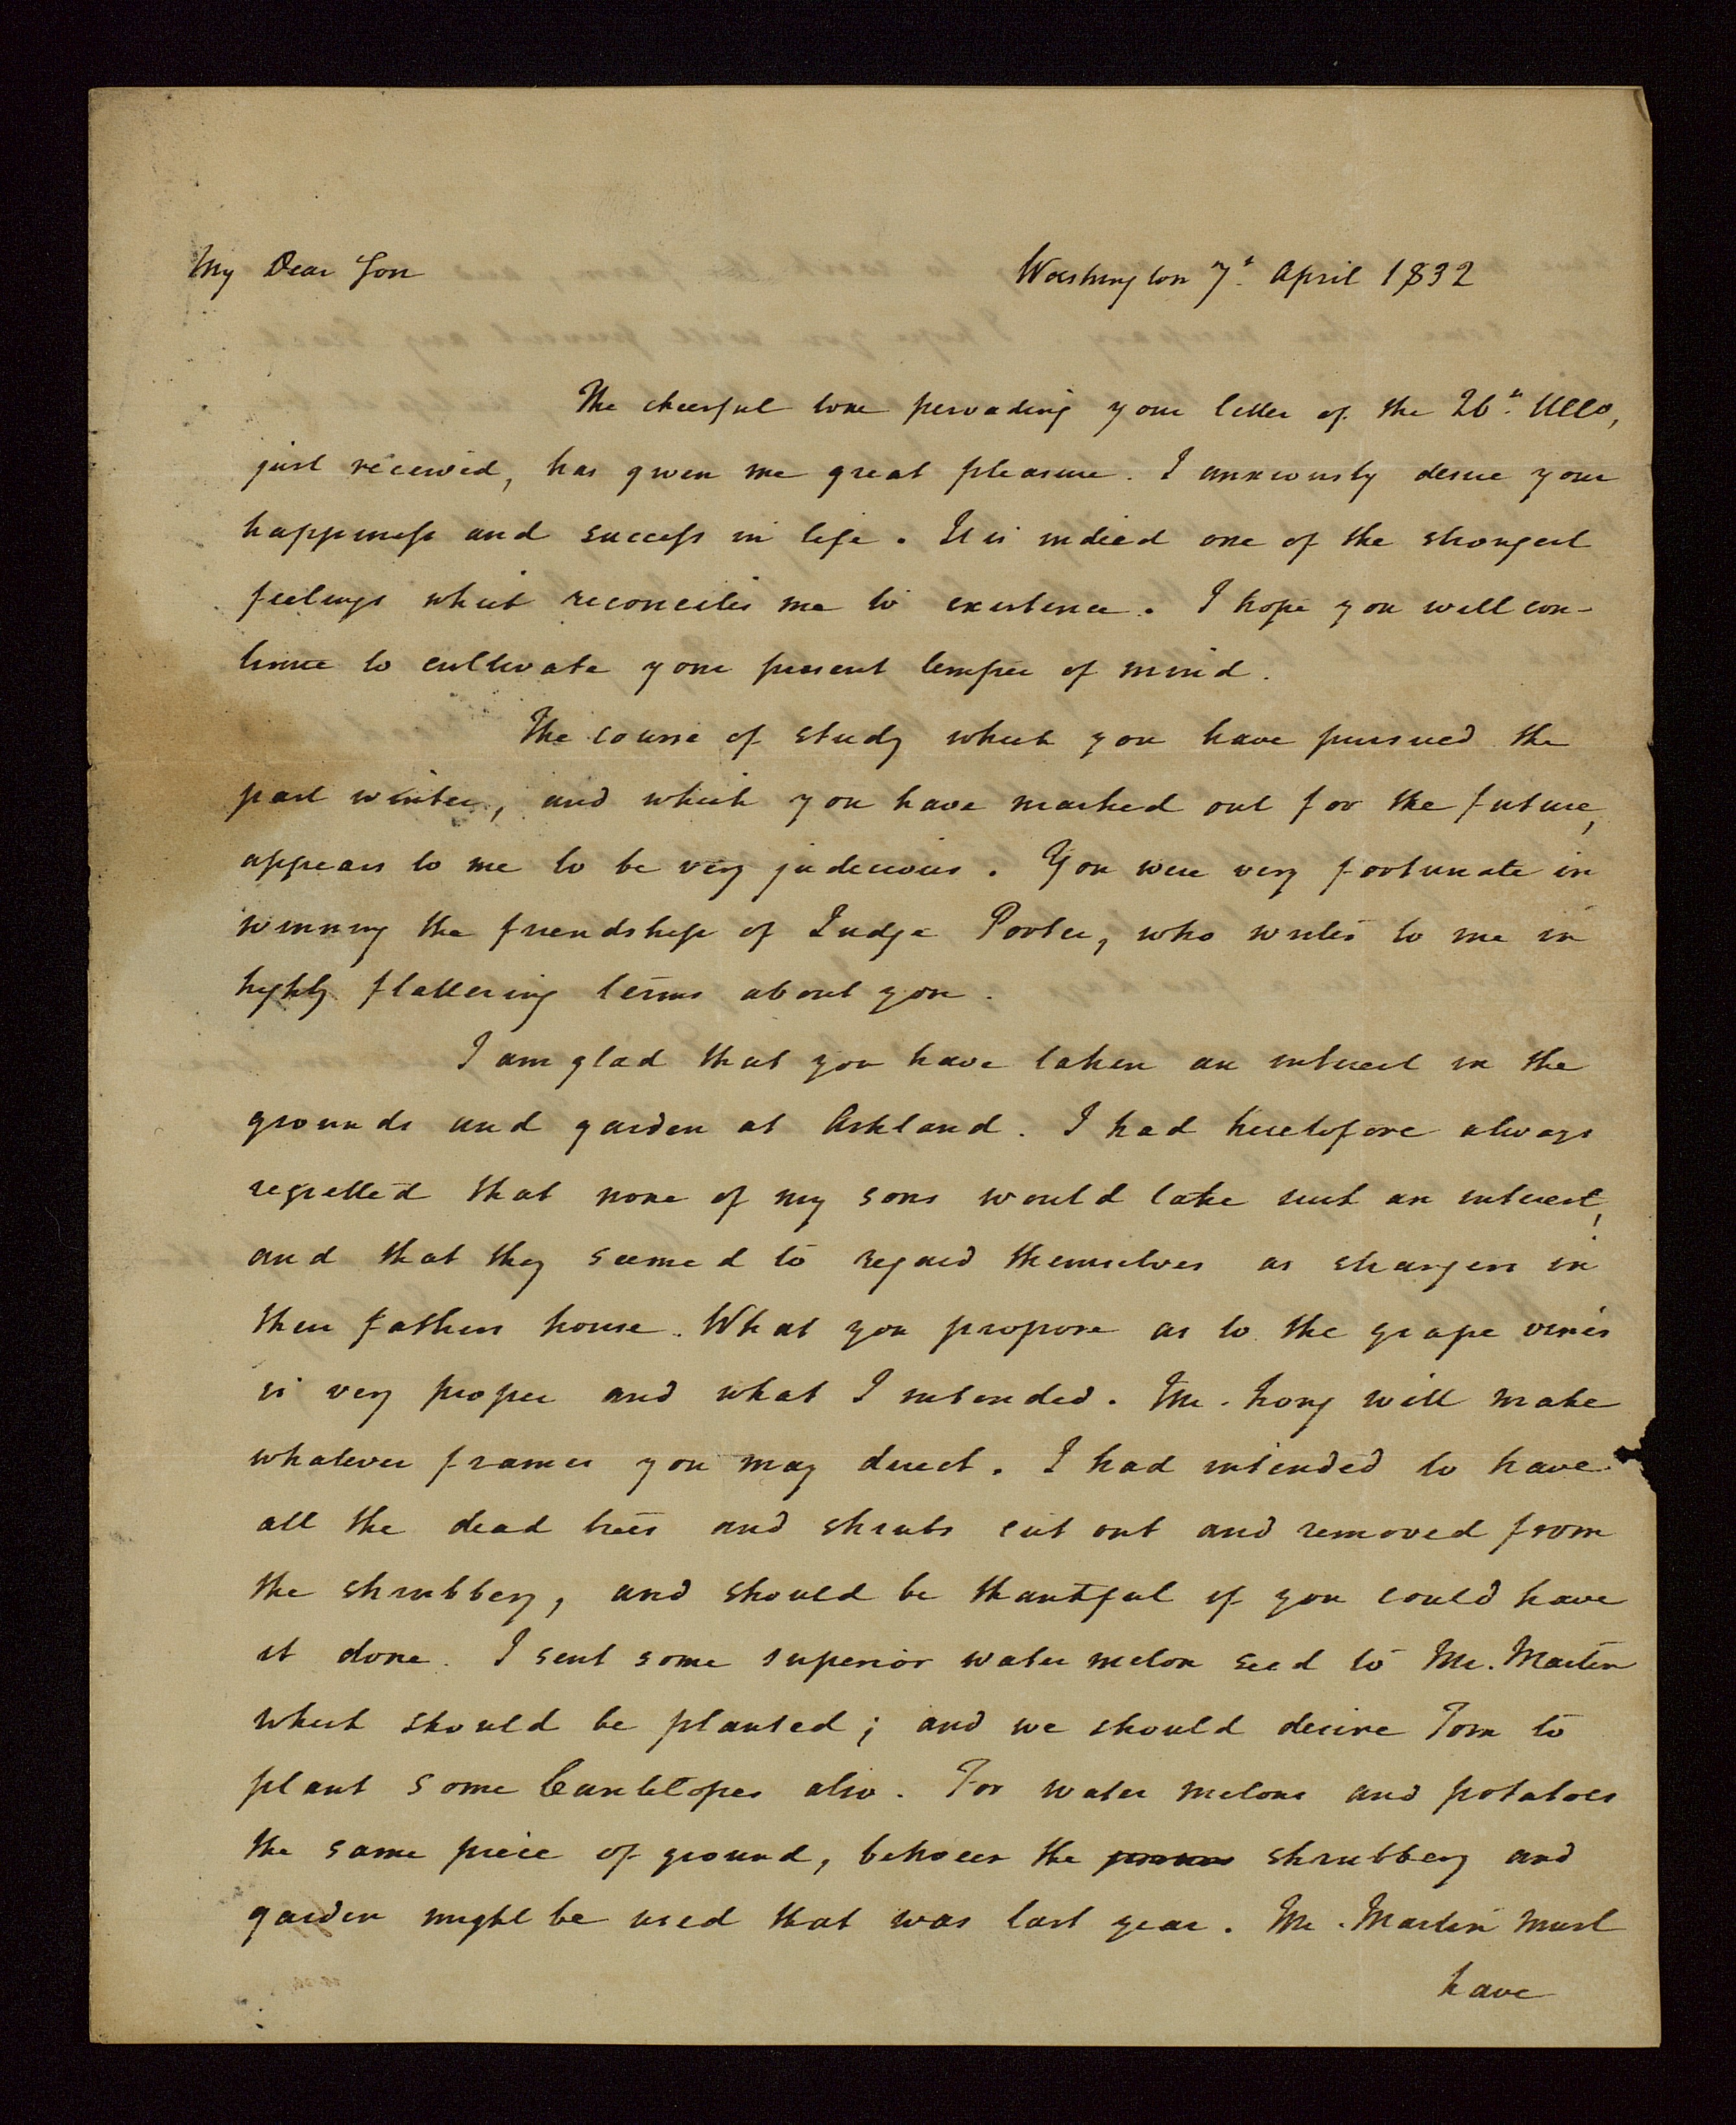 My Dear Son Washington 7th. April 1832
The cheerful tone pervading your letter of the 26th. Ulto,
just received, has given me great pleasure. I anxiously desire your
happiness and success in life. It is indeed one of the strongest
feelings which reconciles me to existence. I hope you will con-
tinue to cultivate your present temper of mind.
The course of study which you have pursued the
past winter, and which you have marked out for the future,
appears to me to be very judicious. You were very fortunate in
winning the friendship of Judge Porter, who writes to me in
highly flattering terms about you.
I am glad that you have taken an interest in the
grounds and garden at Ashland. I had heretofore always
regretted that none of my sons would take such an interest,
and that they seemed to regard themselves as strangers in
their fathers house. What you propose as to the grape vines
is very proper and what I intended. Mr. Long will make
whatever frames you may direct. I had intended to have
all the dead trees and shrubs cut out and removed from
the shrubbery, and should be thankful if you could have
it done. I sent some superior water melon seed to Mr. Martin
which should be planted; and we should desire Tom to
plant some Cantelopes also. For water melons and potatoes
the same piece of ground, between the shrubbery and
garden might be used that was last year. Mr. Martin must
have